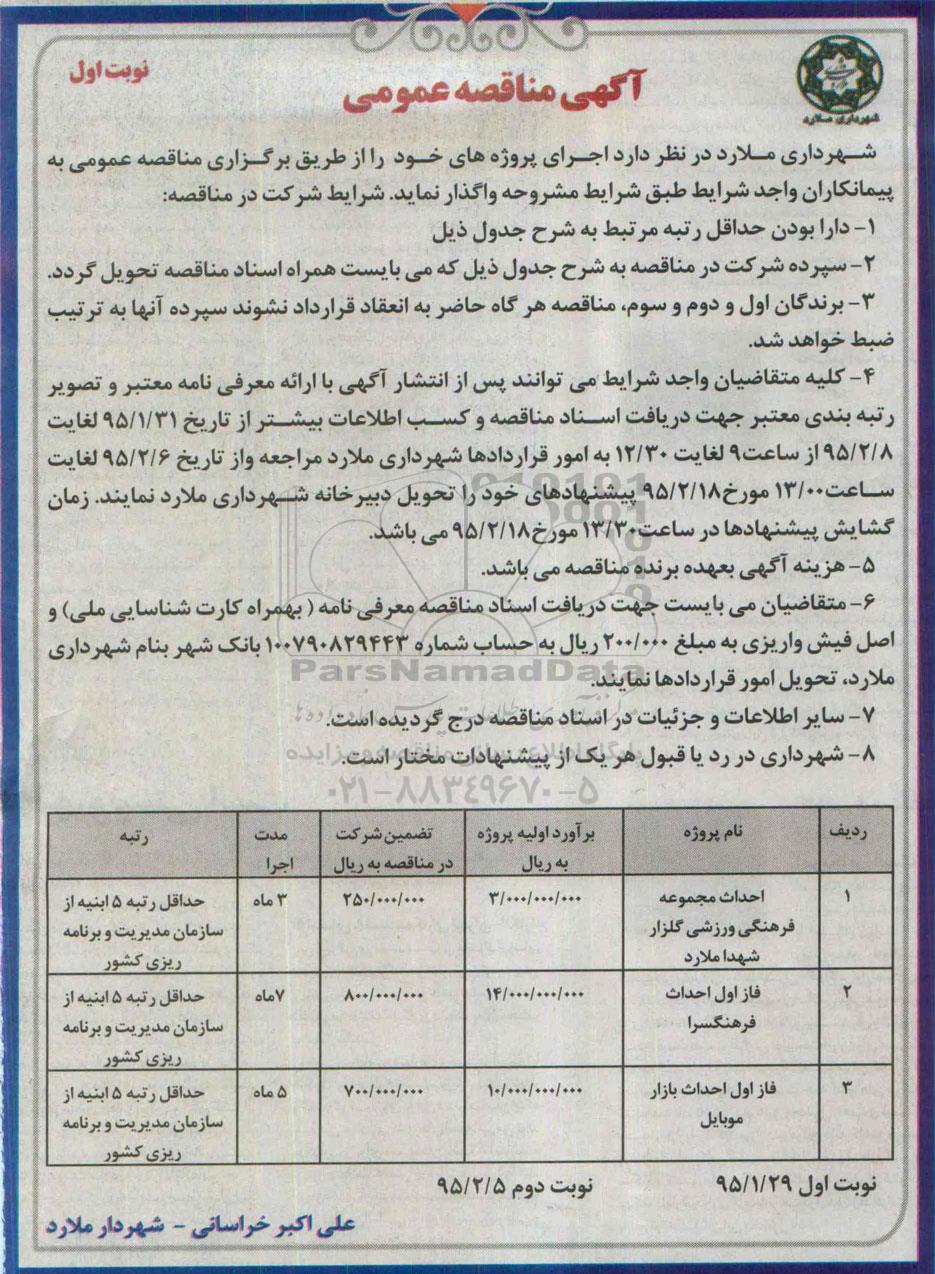 نوبت اول
آگهی مناقصه عمومی
شهرداری ملارد
شهرداری ملارد در نظر دارد اجرای پروژه های خود را از طریق برگزاری مناقصه عمومی به
پیمانکاران واجد شرایط طبق شرایط مشروحه واگذار نماید. شرایط شرکت در مناقصه:
۱- دارا بودن حداقل رتبه مرتبط به شرح جدول ذیل
۲- سپرده شرکت در مناقصه به شرح جدول ذیل که می بایست همراه اسناد مناقصه تحویل گردد.
۳- برندگان اول و دوم و سوم، مناقصه هر گاه حاضر به انعقاد قرارداد نشوند سپرده آنها به ترتیب
ضبط خواهد شد.
۴- کلیه متقاضیان واجد شرایط می توانند پس از انتشار آگهی با ارائه معرفی نامه معتبر و تصویر
رتبه بندی معتبر جهت دریافت اسناد مناقصه و کسب اطلاعات بیشتر از تاریخ ۹۵/۱/۳۱ لغایت
۹۵/۲/۸ از ساعت۹ لغایت ۱۲/۳۰ به امور قراردادها شهرداری ملارد مراجعه واز تاریخ ۹۵/۲/۶ لغایت
ساعت۱۳/۰۰ مورخ۹۵/۲/۱۸ پیشنهادهای خود را تحویل دبیرخانه شهرداری ملارد نمایند. زمان
گشایش پیشنهادها در ساعت۱۳/۳۰ مورخ۹۵/۲/۱۸ می باشد.
۵- هزینه آگهی بعهده برنده مناقصه می باشد.
۶- متقاضیان می بایست جهت دریافت اسناد مناقصه معرفی نامه ( بهمراه کارت شناسایی ملی) و
اصل فیش واریزی به مبلغ ۲۰۰/۰۰۰ ریال به حساب شماره ۱۰۰۷۹۰۸۲۹۴۴۳ بانک شهر بنام شهرداری
ParsNamadData
ملارد، تحویل امور قراردادها نمایند.
۷- سایر اطلاعات و جزئیات در اسناد مناقصه درج گردیده است.
۸- شهرداری در رد یا قبول هر یک از پیشنهادات مختار است.
۰۲۱-۸۸۳۴۹۶۷۰-۵
ردیف نام پروژه برآورد اولیه پروژه تضمین شرکت مدت رتبه
به ریال در مناقصه به ریال اجرا
۱ احداث مجموعه ۳/۰۰۰/۰۰۰/۰۰۰ ۲۵۰/۰۰۰/۰۰۰ ۳ ماه حداقل رتبه ۵ ابنیه از
فرهنگی ورزشی گلزار سازمان مدیریت و برنامه
شهدا ملارد ریزی کشور
۲ فاز اول احداث ۱۴/۰۰۰/۰۰۰/۰۰۰ ۸۰۰/۰۰۰/۰۰۰ ۷ماه حداقل رتبه ۵ ابنیه از
فرهنگسرا سازمان مدیریت و برنامه
ریزی کشور
۳ فاز اول احداث بازار ۱۰/۰۰۰/۰۰۰/۰۰۰ ۷۰۰/۰۰۰/۰۰۰ ۵ ماه حداقل رتبه ۵ ابنیه از
موبایل سازمان مدیریت و برنامه
ریزی کشور
نوبت اول ۹۵/۱/۲۹ نوبت دوم ۹۵/۲/۵
علی اکبر خراسانی - شهردار ملارد